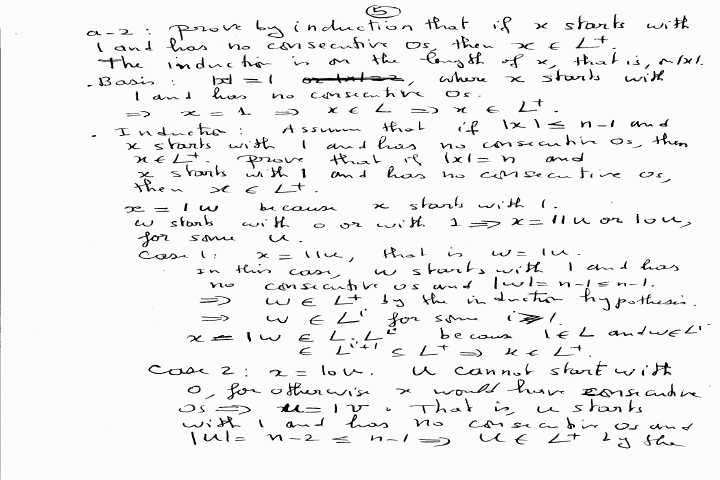 5
a-2: prove by induction that if x starts with
1 and has no consecutive 0s, then x ∈ L⁺.
The induction is on the length of x, that is, on |x|.
. Basis : |x| = 1 or |x| = 2, where x starts with
1 and has no consecutive 0s.
⇒ x = 1 ⇒ x ∈ L ⇒ x ∈ L⁺.
. Induction : Assume that if |x| ≤ n-1 and
x starts with 1 and has no consecutive 0s, then
x ∈ L⁺. prove that if |x| = n and
x starts with 1 and has no consecutive 0s,
then x ∈ L⁺.
x = 1w because x starts with 1.
w starts with 0 or with 1 ⇒ x = 11u or 10u,
for some u.
Case 1: x = 11u, that is w = 1u.
In this case, w starts with 1 and has
no consecutive 0s and |w| = n-1 ≤ n-1.
⇒ w ∈ L⁺ by the induction hypothesis.
⇒ w ∈ Lⁱ for some i ≥ 1.
x = 1w ∈ L.Lⁱ because 1 ∈ L and w ∈ Lⁱ
∈ Lⁱ⁺¹ ⊆ L⁺ ⇒ x ∈ L⁺.
Case 2: x = 10u. u cannot start with
0, for otherwise x would have consecutive
0s ⇒ u = 1v. That is, u starts
with 1 and has no consecutive 0s and
|u| = n-2 ≤ n-1 ⇒ u ∈ L⁺ by the